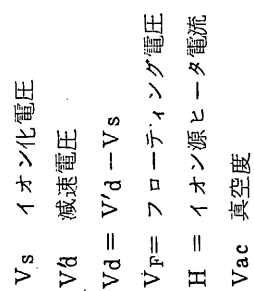 Vs イオン化電圧
V'd 減速電圧
Vd = V'd − Vs
VF= フローティング電圧
H = イオン源ヒータ電流
Vac 真空度